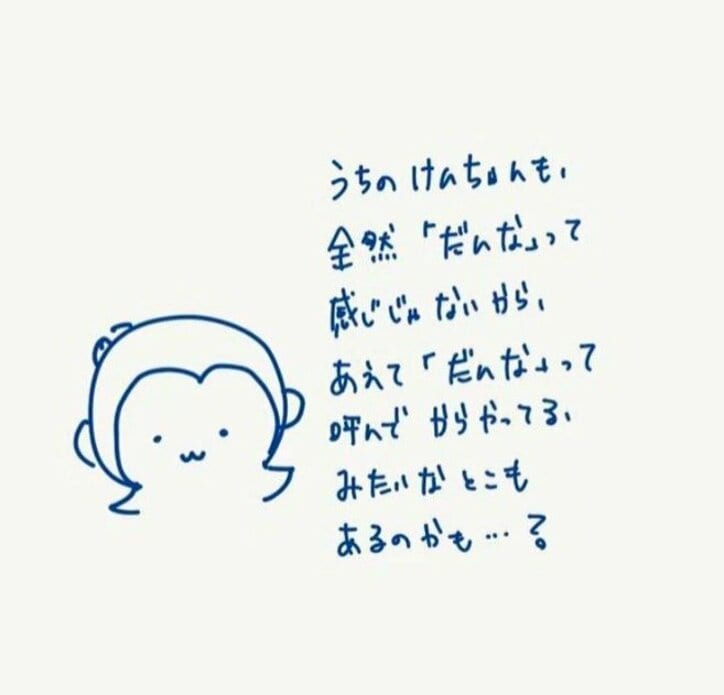 うちのけんちゃんも、
全然「だんな」って
感じじゃないから、
あえて「だんな」って
呼んでからやってる、
みたいなとこも
あるのかも…?